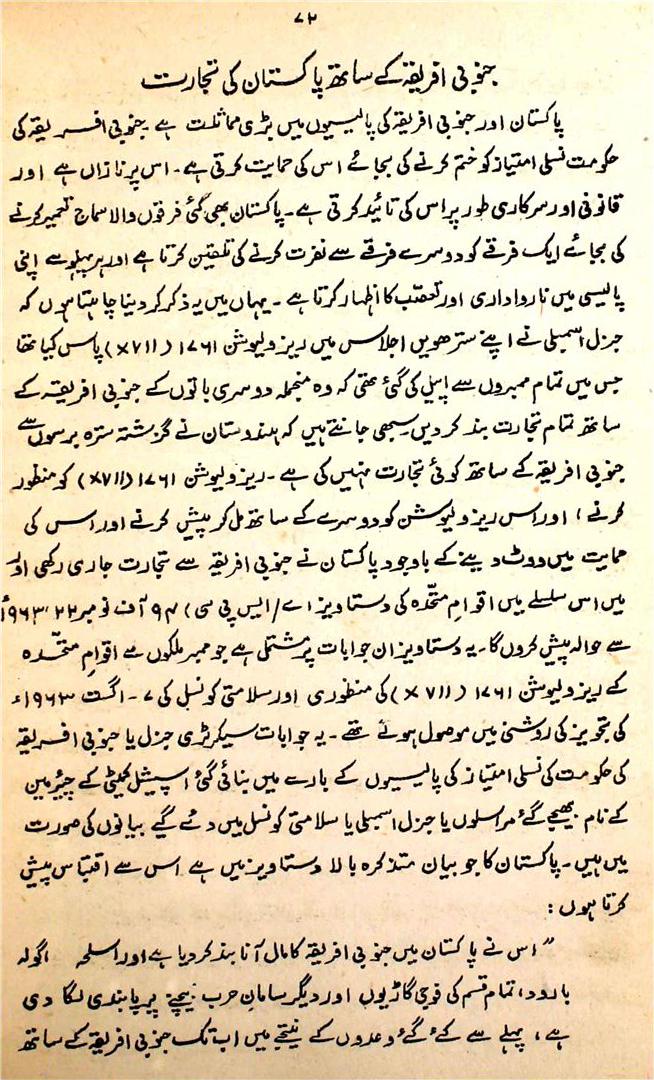 ۷۲
جنوبی افریقہ کے ساتھ پاکستان کی تجارت
پاکستان اور جنوبی افریقہ کی پالیسیوں میں بڑی مماثلت ہے۔ جنوبی افریقہ کی
حکومت نسلی امتیاز کو ختم کرنے کی بجائے اس کی حمایت کرتی ہے۔ اس پر نازاں ہے اور
قانونی اور سرکاری طور پر اس کی تائید کرتی ہے۔ پاکستان بھی کئی فرقوں والا سماج تعمیر کرنے
کی بجائے ایک فرقے کو دوسرے فرقے سے نفرت کرنے کی تلقین کرتا ہے اور ہر پہلو سے اپنی
پالیسی میں نارواداری اور تعصّب کا اظہار کرتا ہے۔ یہاں میں یہ ذکر کر دینا چاہتا ہوں کہ
جنرل اسمبلی نے اپنے سترھویں اجلاس میں ریزولیوشن ۱۷۶۱ (XVII) پاس کیا تھا
جس میں تمام ممبروں سے اپیل کی گئی تھی کہ وہ منجملہ دوسری باتوں کے جنوبی افریقہ کے
ساتھ تمام تجارت بند کر دیں۔ سبھی جانتے ہیں کہ ہندوستان نے گزشتہ سترہ برسوں سے
جنوبی افریقہ کے ساتھ کوئی تجارت نہیں کی ہے۔ ریزولیوشن ۱۷۶۱ (XVII) کو منظور
کرنے، اور اس ریزولیوشن کو دوسرے کے ساتھ مل کر پیش کرنے اور اس کی
حمایت میں ووٹ دینے کے باوجود پاکستان نے جنوبی افریقہ سے تجارت جاری رکھی اور
میں اس سلسلے میں اقوامِ متحّدہ کی دستاویز اے/ایس پی سی) ۹۴ آف نومبر ۲۲، ۱۹۶۳ء
سے حوالہ پیش کروں گا۔ یہ دستاویز ان جوابات پر مشتمل ہے جو ممبر ملکوں سے اقوامِ متحّدہ
کے ریزولیوشن ۱۷۶۱ (XVII) کی منظوری اور سلامتی کونسل کی ۷۔ اگست ۱۹۶۳ء
کی تجویز کی روشنی میں موصول ہوئے تھے۔ یہ جوابات سیکرٹری جنرل یا جنوبی افریقہ
کی حکومت کی نسلی امتیاز کی پالیسیوں کے بارے میں بنائی گئی اسپیشل کمیٹی کے چیئرمین
کے نام بھیجے گئے مراسلوں یا جنرل اسمبلی یا سلامتی کونسل میں دئے گیے بیانوں کی صورت
میں ہیں۔ پاکستان کا جو بیان متذکرہ بالا دستاویز میں ہے اس سے اقتباس پیش
کرتا ہوں:
"اس نے پاکستان میں جنوبی افریقہ کا مال آنا بند کر دیا ہے اور اسلحہ، گولہ
بارود، تمام قسم کی فوجی گاڑیوں اور دیگر سامانِ حرب بیچنے پر پابندی لگا دی
ہے، پہلے سے کئے گئے وعدوں کے نتیجے میں اب تک جنوبی افریقہ کے ساتھ